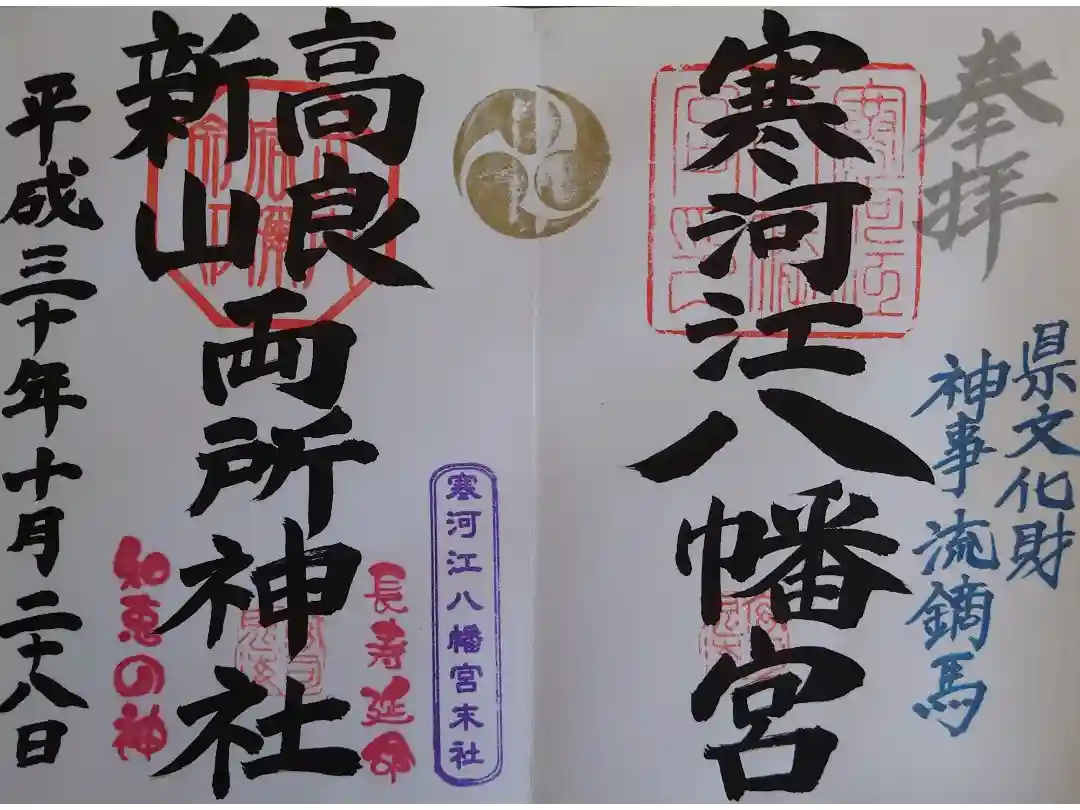 奉拝
県文化財
神事 流鏑馬
寒河江八幡宮
寒河江八幡宮末社
長寿延命
高良
新山
両所神社
知恵の神
平成三十年十月二十八日